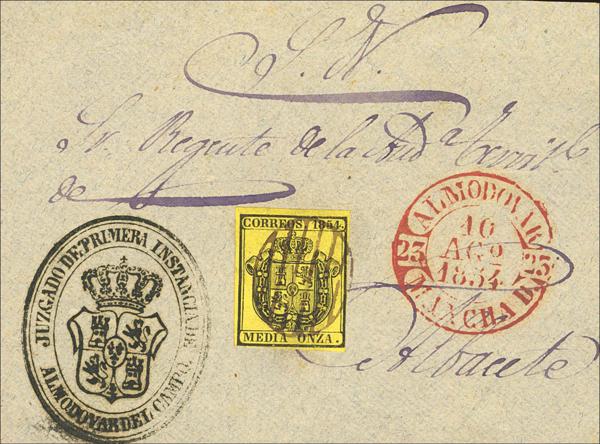 S. N.
Sr. Regente de la Aud.ª Territ.l
de
Albacete
CORREOS. 1854.
MEDIA ONZA.
JUZGADO DE PRIMERA INSTANCIA DE
ALMODOVAR DEL CAMPO.
ALMODOVAR
10
AGO
1854
23 23
MANCHA BA